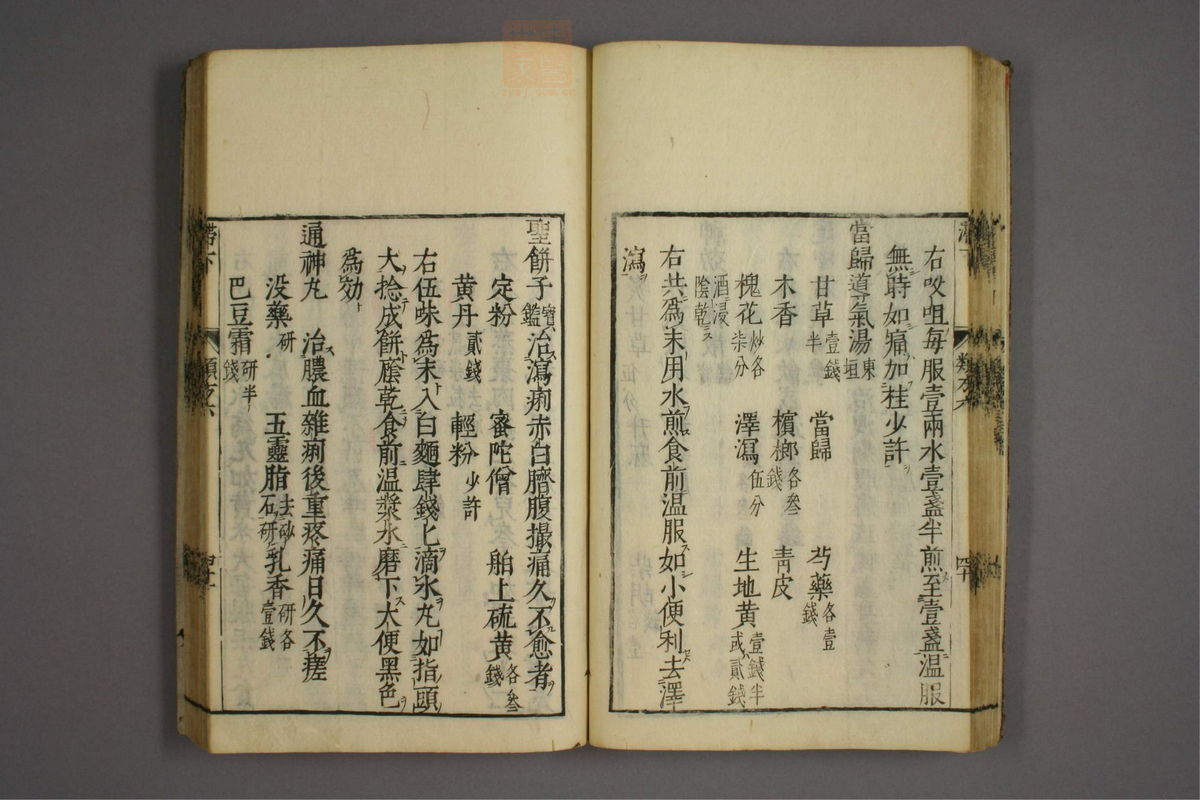 右㕮咀每服壹兩水壹盞半煎至壹盞温服
無時如痛加桂少許
當歸道氣湯東垣
甘草壹錢半 當歸 芍藥各壹錢
木香 檳榔各叁錢 青皮
槐花炒各柒分 澤瀉伍分 生地黄壹錢半或貳錢
酒浸陰乾
右共為末用水煎食前温服如小便利去澤
瀉
聖餅子寶鑑治瀉痢赤白臍腹撮痛久不愈者
定粉 蜜陀僧 舶上硫黄各叁錢
黄丹貳錢 輕粉少許
右伍味為末入白麵肆錢匕滴水丸如指頭
大捻成餅陰乾食前温漿水磨下大便黑色
為効
通神丸 治膿血雜痢後重疼痛日久不瘥
没藥研 五靈脂去砂石研 乳香研各壹錢
巴豆霜研半錢
類之六